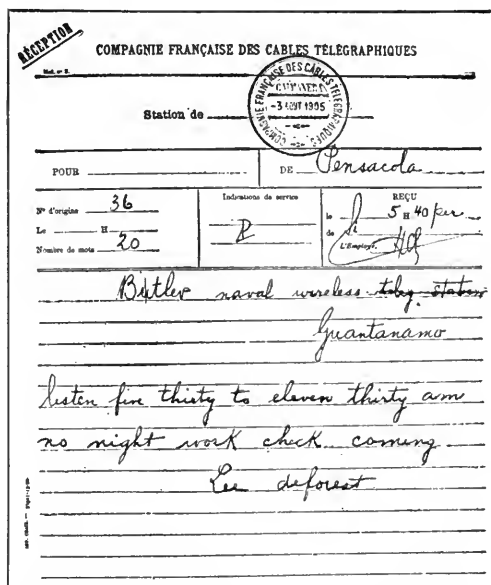 RÉCEPTION
COMPAGNIE FRANÇAISE DES CABLES TÉLÉGRAPHIQUES
Mod. nº 2.
COMPAGNIE FRANÇAISE DES CABLES TÉLÉGRAPHIQUES
-3 AOUT 1905
Station de
POUR
DE Pensacola
Nº d'origine 36
Le H
Nombre de mots 20
Indications de service
REÇU
le 5 H 40 per
de
L'Employé,
Butler naval wireless teleg. station
Guantanamo
listen five thirty to eleven thirty am
no night work check coming
Lee deforest